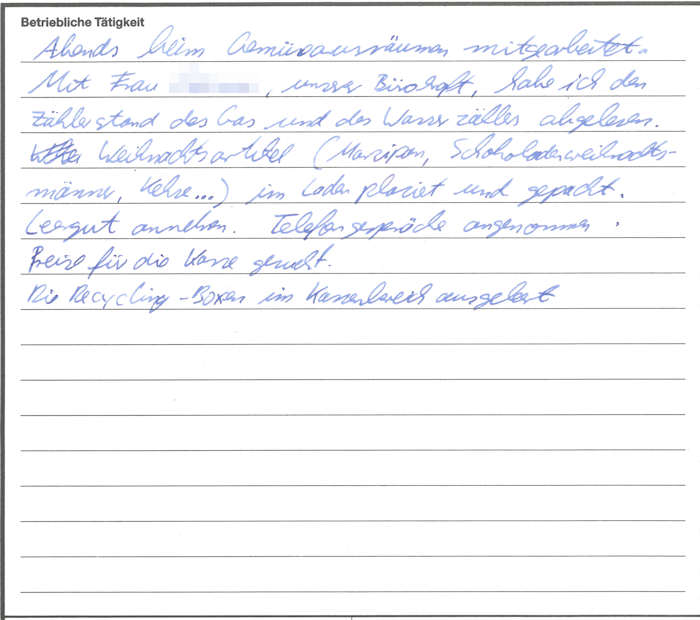 Betriebliche Tätigkeit
Abends beim Gemüseausräumen mitgearbeitet.
Mit Frau , unserer Bürokraft, habe ich den
Zählerstand des Gas und des Wasserzälles abgelesen.
Weihnachtsartikel (Marzipan, Schokoladenweihnachts-
männer, Kekse...) im Laden plaziet und gepackt.
Leergut annehen. Telefongespräche angenommen.
Preise für die Kasse gesucht.
Die Recycling-Boxen im Kassenbereich ausgeleert